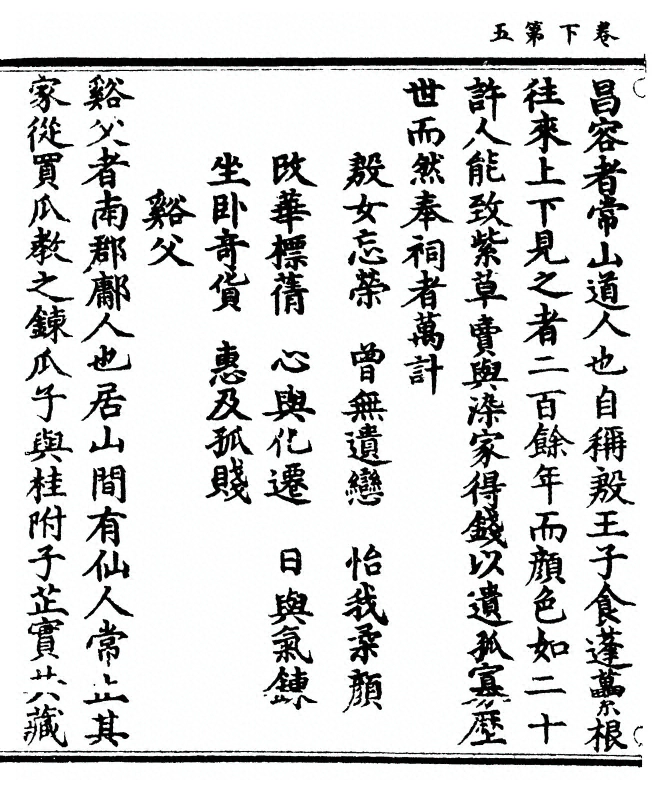 卷下第五
昌容者常山道人也自稱殷王子食蓬虆根
往來上下見之者二百餘年而顔色如二十
許人能致紫草賣與染家得錢以遺孤寡歷
世而然奉祠者萬計
殷女忘榮 曾無遺戀 怡我柔顔
改華標蒨 心與化遷 日與氣鍊
坐卧竒貨 惠及孤賤
谿父
谿父者南郡鄘人也居山間有仙人常止其
家從買瓜教之鍊瓜子與桂附子芷實共藏